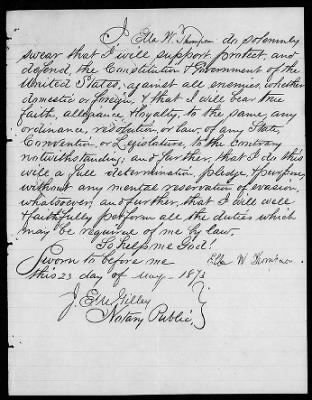 I Ella W. Thompson do solemnly
swear that I will support, protect, and
defend, the Constitution & Government of the
United States, against all enemies, whether
domestic or foreign, & that I will bear true
faith, allegiance, & loyalty, to the same, any
ordinance, resolution, or law, of any State,
Convention, or Legislature, to the contrary
notwithstanding; and further, that I do this
with a full determination, pledge, & purpose,
without any mental reservation or evasion,
whatsoever; and further, that I will well
& faithfully perform all the duties which
may be required of me by law.
So help me God!
Sworn to before me
Ella W Thompson
this 23 day of May - 1873
Notary Public,